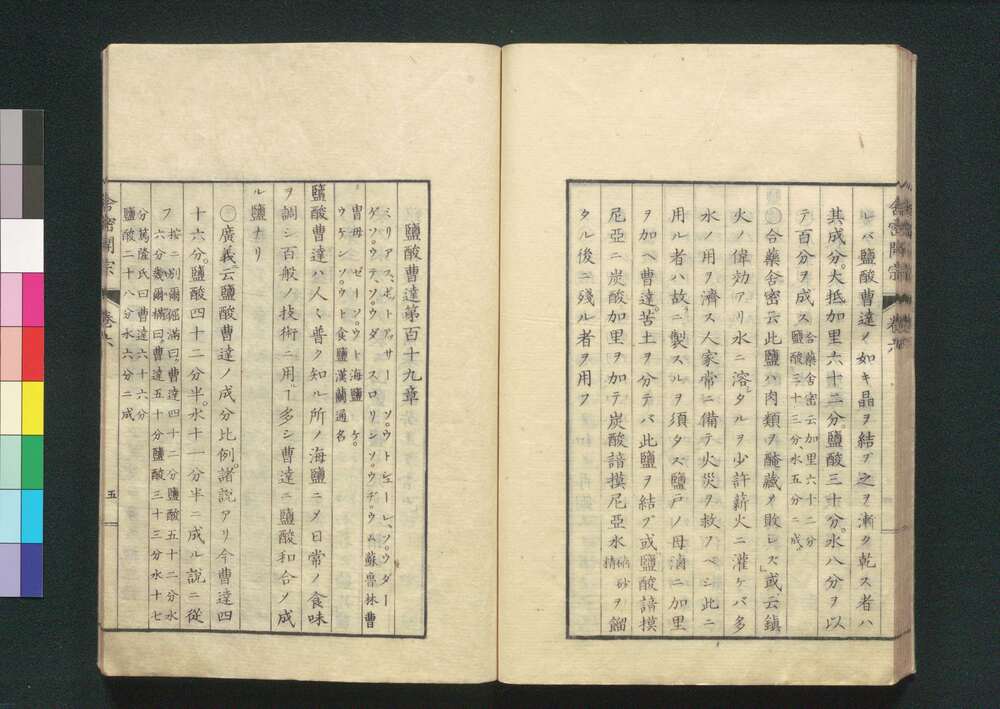 レバ鹽酸曹達ノ如キ晶ヲ結ブ之ヲ漸ク乾ス者ハ
其成分大抵加里六十二分鹽酸三十分水八分ヲ以
テ百分ヲ成ス
合藥舍密云加里六十二分
鹽酸三十三分水五分ニ成
合藥舍密云此鹽ハ肉類ヲ醃藏メ敗レズ或云鎮
火ノ偉効アリ水ニ溶シタルヲ少許薪火ニ灌ケバ多
水ノ用ヲ濟ス人家常ニ備テ火災ヲ救フベシ此ニ
用ル者ハ故ニ製スルヲ須タス鹽戸ノ母滷ニ加里
ヲ加ヘ曹達苦土ヲ分テバ此鹽ヲ結ブ或鹽酸諳摸
尼亞ニ炭酸加里ヲ加テ炭酸諳摸尼亞水
硇砂
精
ヲ餾
タル後ニ殘ル者ヲ用フ
舍密開宗
卷六
鹽酸曹達第百十九章
ミリアス、ポトアッサー ソ。ウトシューレ、ソ。ウダー
ゲソ。ウテ、ソ。ウダ スロリンソ。ウヂ。ウム蘇魯林曹
冑母 ゼーソ。ウト海鹽 ケ。
ウケンソ。ウト食鹽漢蘭通名
鹽酸曹達ハ人々普ク知ル所ノ海鹽ニメ日常ノ食味
ヲ調シ百般ノ技術ニ用ル多シ曹達ニ鹽酸和合ノ成
ル鹽ナリ
廣義云鹽酸曹達ノ成分比例諸説アリ今曹達四
十六分鹽酸四十二分半水十一分半ニ成ル説ニ從
フ
按ニ別爾倔滿曰曹達四十二分鹽酸五十二分水
六分幾爾橫曰曹達五十分鹽酸三十三分水十七
分萬隆氏曰曹達六十六分
鹽酸二十八分水六分ニ成
舍密開宗
卷六
五